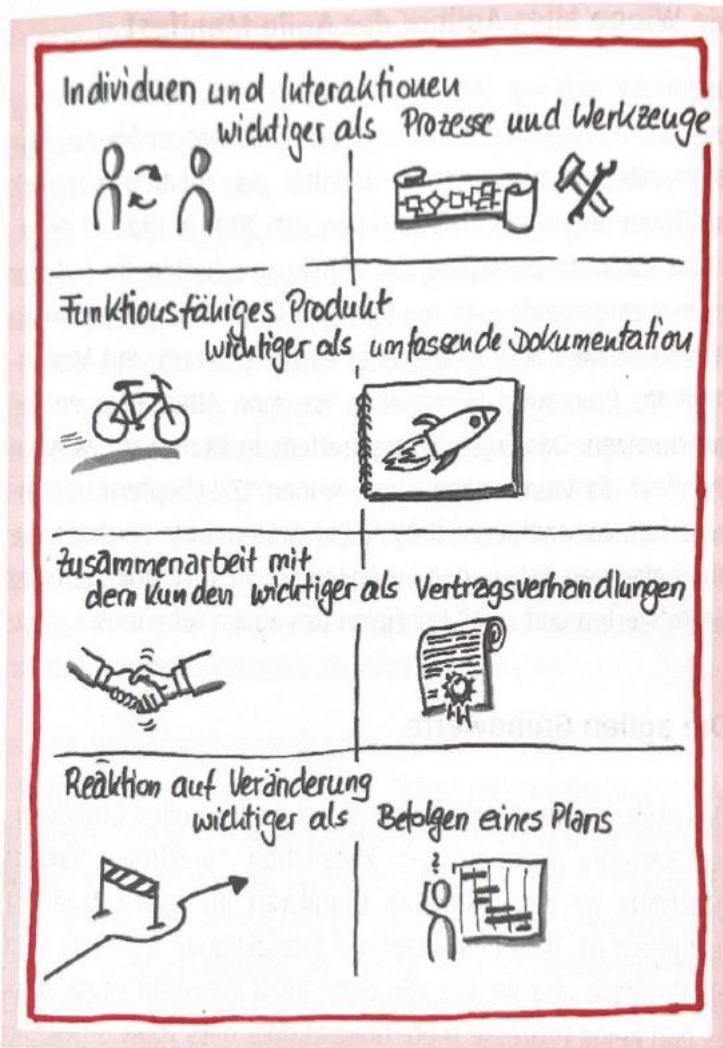 Individuen und Interaktionen
wichtiger als Prozesse und Werkzeuge
Funktionsfähiges Produkt
wichtiger als umfassende Dokumentation
Zusammenarbeit mit
dem Kunden wichtiger als Vertragsverhandlungen
Reaktion auf Veränderung
wichtiger als Befolgen eines Plans
?